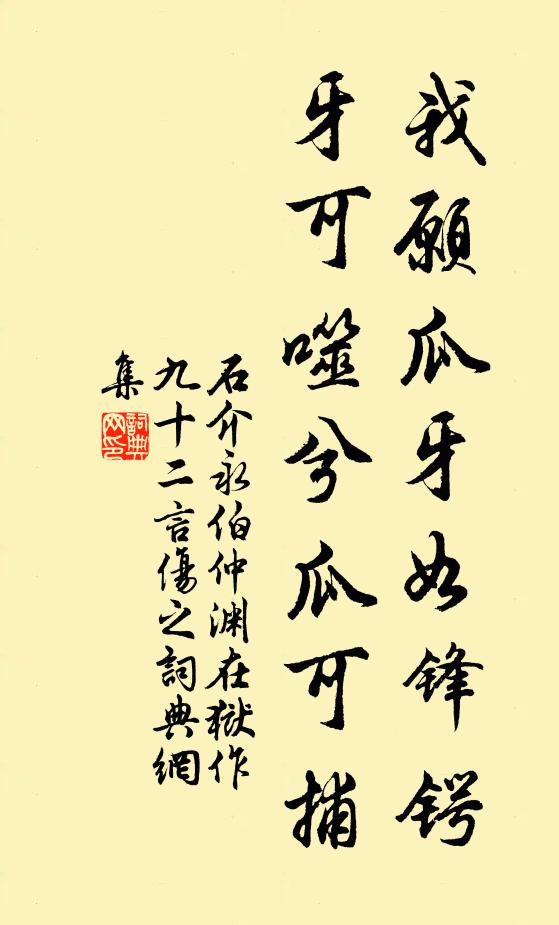 我願瓜牙如鋒鍔
牙可噬兮瓜可捕
石介永伯仲淵在獄作
九十二言傷之詞典網
集
詞典
网印